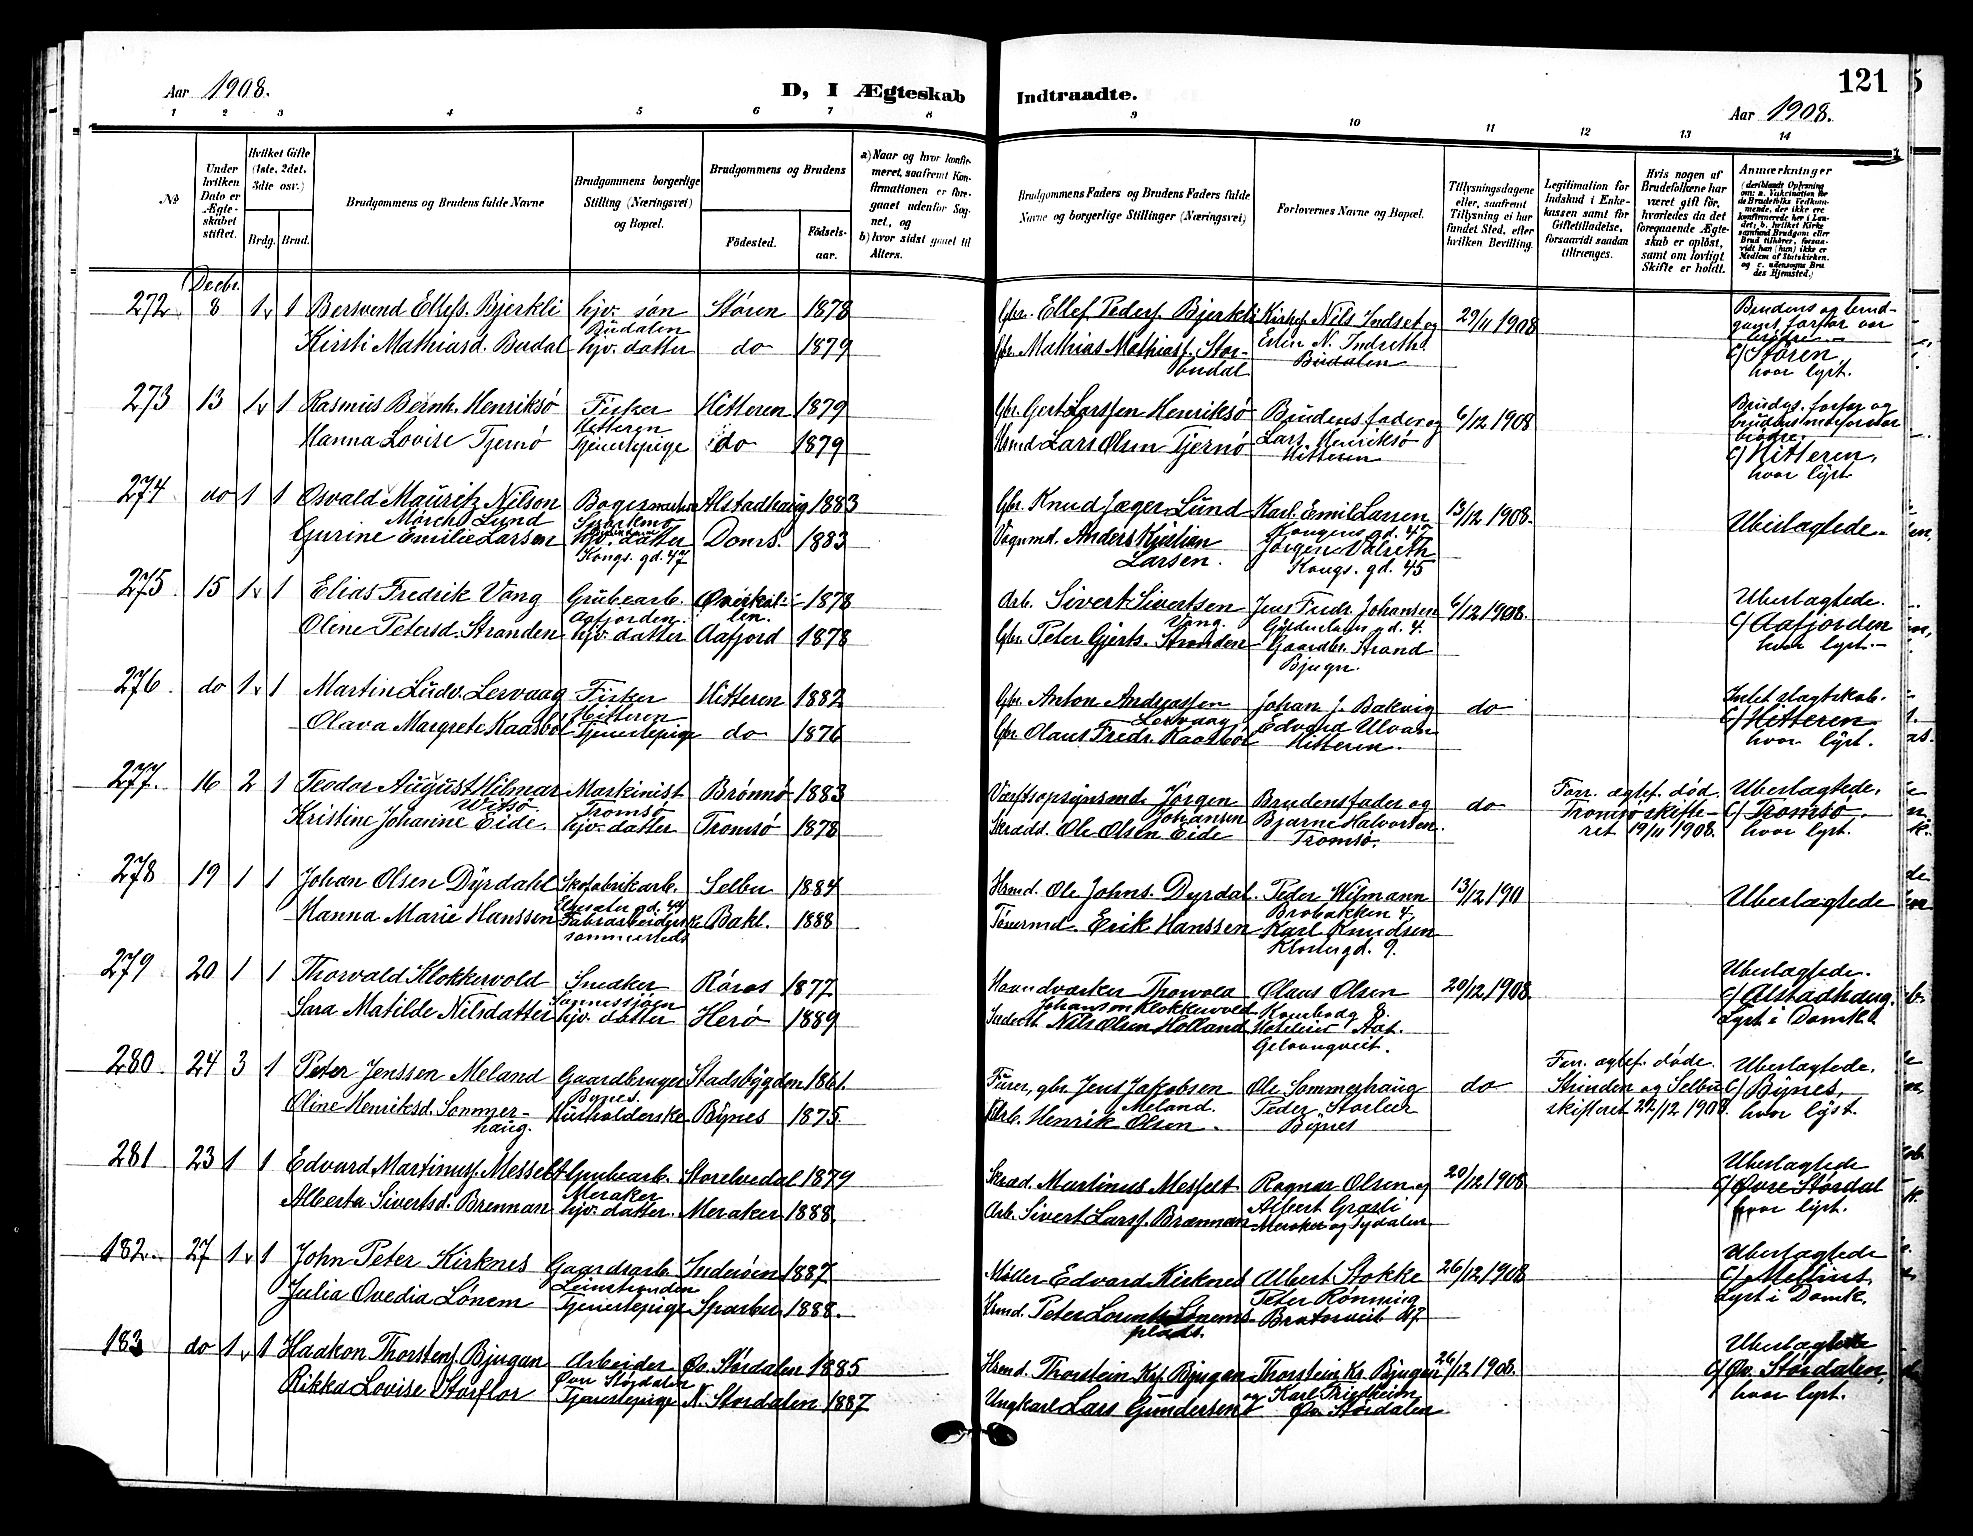 Aar 1908.
D, I Ægteskab
Indtraadte.
121
Aar 1908.
1 2 3 4 5 6 7 8 9 10 11 12 13 14
№
Under hvilken Dato er Ægteskabet stiftet.
Hvilket Gifte (1ste, 2det, 3die osv.)
Brdg. Brud.
Brudgommens og Brudens fulde Navne
Brudgommens borgerlige Stilling (Næringsvei) og Bopæl.
Brudgommens og Brudens
Fødested.
Fødselsaar.
a) Naar og hvor konfirmeret, saafremt Konfirmationen er foregaaet udenfor Sognet, og
b) hvor sidst gaaet til Alters.
Brudgommens Faders og Brudens Faders fulde Navne og borgerlige Stillinger (Næringsvei)
Forlovernes Navne og Bopæl.
Tillysningsdagene eller, saafremt Tillysning ei har fundet Sted, efter hvilken Bevilling.
Legitimation for Indskud i Enkekassen samt for Giftetilladelse, forsaavidt saadan tiltrænges.
Hvis nogen af Brudefolkene har været gift før, hvorledes da det foregaaende Ægteskab er opløst, samt om lovligt Skifte er holdt.
Anmærkninger
Decbr.
272. 8 1 v 1 Bersvend Ellefs. Bjerkli hjv. søn Støren 1878 Gbr. Ellef Peders. Bjerkli Nils Indset og 29/11 1908 Brudens og brudgoms farfar var
Budalen
Kirsti Mathiasd. Budal hjv. datter do 1879 Gbr. Mathias Mathiass. Storbudal Budalen
C/ Støren, hvor lyst.
273 13 1 v 1 Rasmus Bernh. Henriksø Fisker Hitteren 1879 Gbr. Gert Larssen Henriksø Brudens fader og 6/12 1908 Brudg. farfar og
Hitteren
Hanna Lovise Tjernø Tjenestepige do 1879 Hsmd Lars Olsen Tjernø Lars Henriksø Hitteren
C/ Hitteren, hvor lyst
274 do 1 1 Osvald Mauritz Nilson Mørch Lund Alstadhaug 1883 Gbr. Knud Jæger Lund Karl Emil Larsen 13/12 1908. Ubeslægtede.
Kongens gd. 47
Gurine Emilie Larsen hjv. datter Doms. 1883 Vognmd. Anders Kristian Larsen. Jørgen
Kongs. gd. 47
Kongs. gd. 45
275. 15 1 v 1 Elias Fredrik Vang Grubearb. 1878 Arb. Sivert Sivertsen Vang. Jens Fredr. Johansen 6/12 1908. Ubeslægtede.
Aafjorden.
Oline Petersd. Stranden hjv. datter Aafjord 1878 Gbr. Peter Gjerts. Stranden Gaardbr. Strand Bjugn.
C/ Aafjorden hvor lyst.
276. do 1 v 1 Martin Ludv. Lervaag Fisker Hitteren 1882 Gbr. Anton Andreassen Lervaag Johan J. Bakvig do Intet slagtskab.
Hitteren
Olava Margrete Kaasbøl Tjenestepige do 1876 Gbr Olaus Fredr. Kaasbøl Edvard Ulvan Hitteren.
C/ Hitteren hvor lyst.
277. 16 2 1 Teodor August Hilmar Witsø Maskinist Brønnø 1883 Værftsopsynsmd. Jørgen Johansen Brudens fader og do Forr. ægtef. død. Ubeslægtede.
Tromsø
Kristine Johanne Eide. hjv. datter Tromsø 1878 Skrædd. Ole Olsen Eide Bjarne Halvorsen. Tromsø.
Tromsø skifteret 19/11 1908.
C/ Tromsø. hvor lyst.
278 19 1 1 Johan Olsen Dyrdahl Skofabrikarb. Selbu 1884 Hsmd. Ole Johns. Dyrdal. Peder Wismann 13/12 190 Ubeslægtede
Brobakken 4
Hanna Marie Hanssen Fabrarbeiderske Bakl. 1888 Tømrmd. Erik Hanssen Karl Knudsen
sammesteds
Klostergd. 9.
279 20 1 1 Thorvald Klokkervold Snedker Røros 1877 Haandværker Thorvald Johansen Klokkervold Olaus Olsen 20/12 1908. Ubeslægtede.
Sannessjøen
Sara Matilde Nilsdatter hjv. datter Herø 1889 Nils Olsen Holland
C/ Alstadhaug. Lyst i Domk.
280. 24 3 1 Peter Jenssen Meland Gaardbruger Stadsbygden 1861. Furer, gbr. Jens Jakobsen Meland. Ole Sommerhaug do Forr. ægtef. døde. Ubeslægtede.
Bynes.
Oline Henriksd. Sommerhaug. Husholderske Bynes 1875. Arb. Henrik Olsen Peder Storler Bynes
Strinden og Selbu skifteret 22/12 1908.
C/ Bynes, hvor lyst.
281 23 1 1 Edvard Martinuss. Messelt Grubearb. Storelvedal 1879 Skræd. Martinus Messelt Ragnar Olsen og 20/12 1908 Ubeslægtede
Meraker
Alberta Sivertsd. Brennan hjv. datter. Meraker 1888. Arb. Sivert Larss. Brennan Albert Græsli
Meraker og Tydalen
C/ Øvre Stordal hvor lyst.
182. 27 1 v 1 John Peter Kirknes Gaardsarb. Inderøen 1887 Møller Edvard Kirknes Albert Stokke 26/12 1908 Ubeslægtede
Leinstranden
Julia Ovedia Lønem Tjenestepige Sparbu 1888. Hsmd. Peter Lorents Lønems plads. Peter Rønning
C/ Melhus. Lyst i Domk.
183 do 1 v 1 Haakon Thorstens. Bjugan Arbeider Øv. Størdalen 1885 Hsmd. Thorstein Krs. Bjugan Thorstein Kr. Bjugan 26/12 1908. Ubeslægtede
Øvre Størdalen
Rikka Lovise Storflor Tjenestepige N. Stordalen 1887 Ungkarl Lars Gundersen og Karl Friedheim Øv. Størdalen
C/ Øv. Stordalen, hvor lyst.